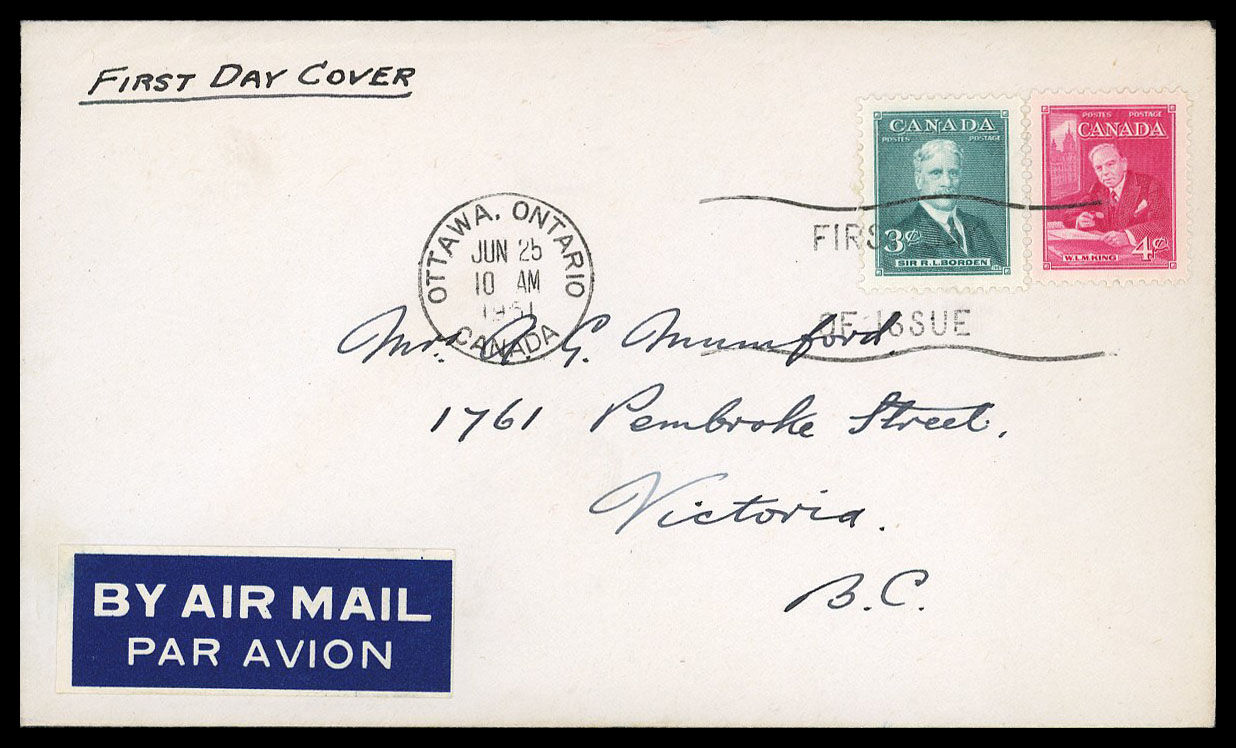 FIRST DAY COVER
CANADA
POSTES POSTAGE
3¢
SIR R.L.BORDEN
POSTES POSTAGE
CANADA
4¢
W.L.M.KING
OTTAWA, ONTARIO
JUN 25
10 AM
1951
CANADA
FIRST
OF ISSUE
Mrs. G. Mumford.
1761 Pembroke Street.
Victoria.
B.C.
BY AIR MAIL
PAR AVION